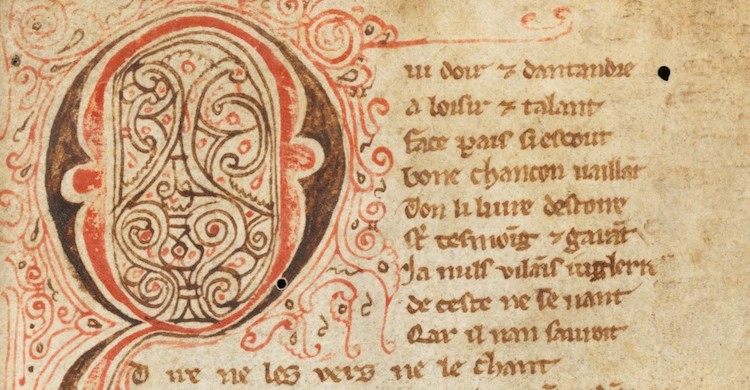 Qui doir ⁊ dantandre
a loisir ⁊ talant
face pais si escout
bone chancon uaillāt
Don li liure destoire
St̄ tesmoīg ⁊ garāt
Ja nuls vilāis iuglerre
de ceste ne se uant
Qar il nan sauroit
D ire ne les vers ne le chant